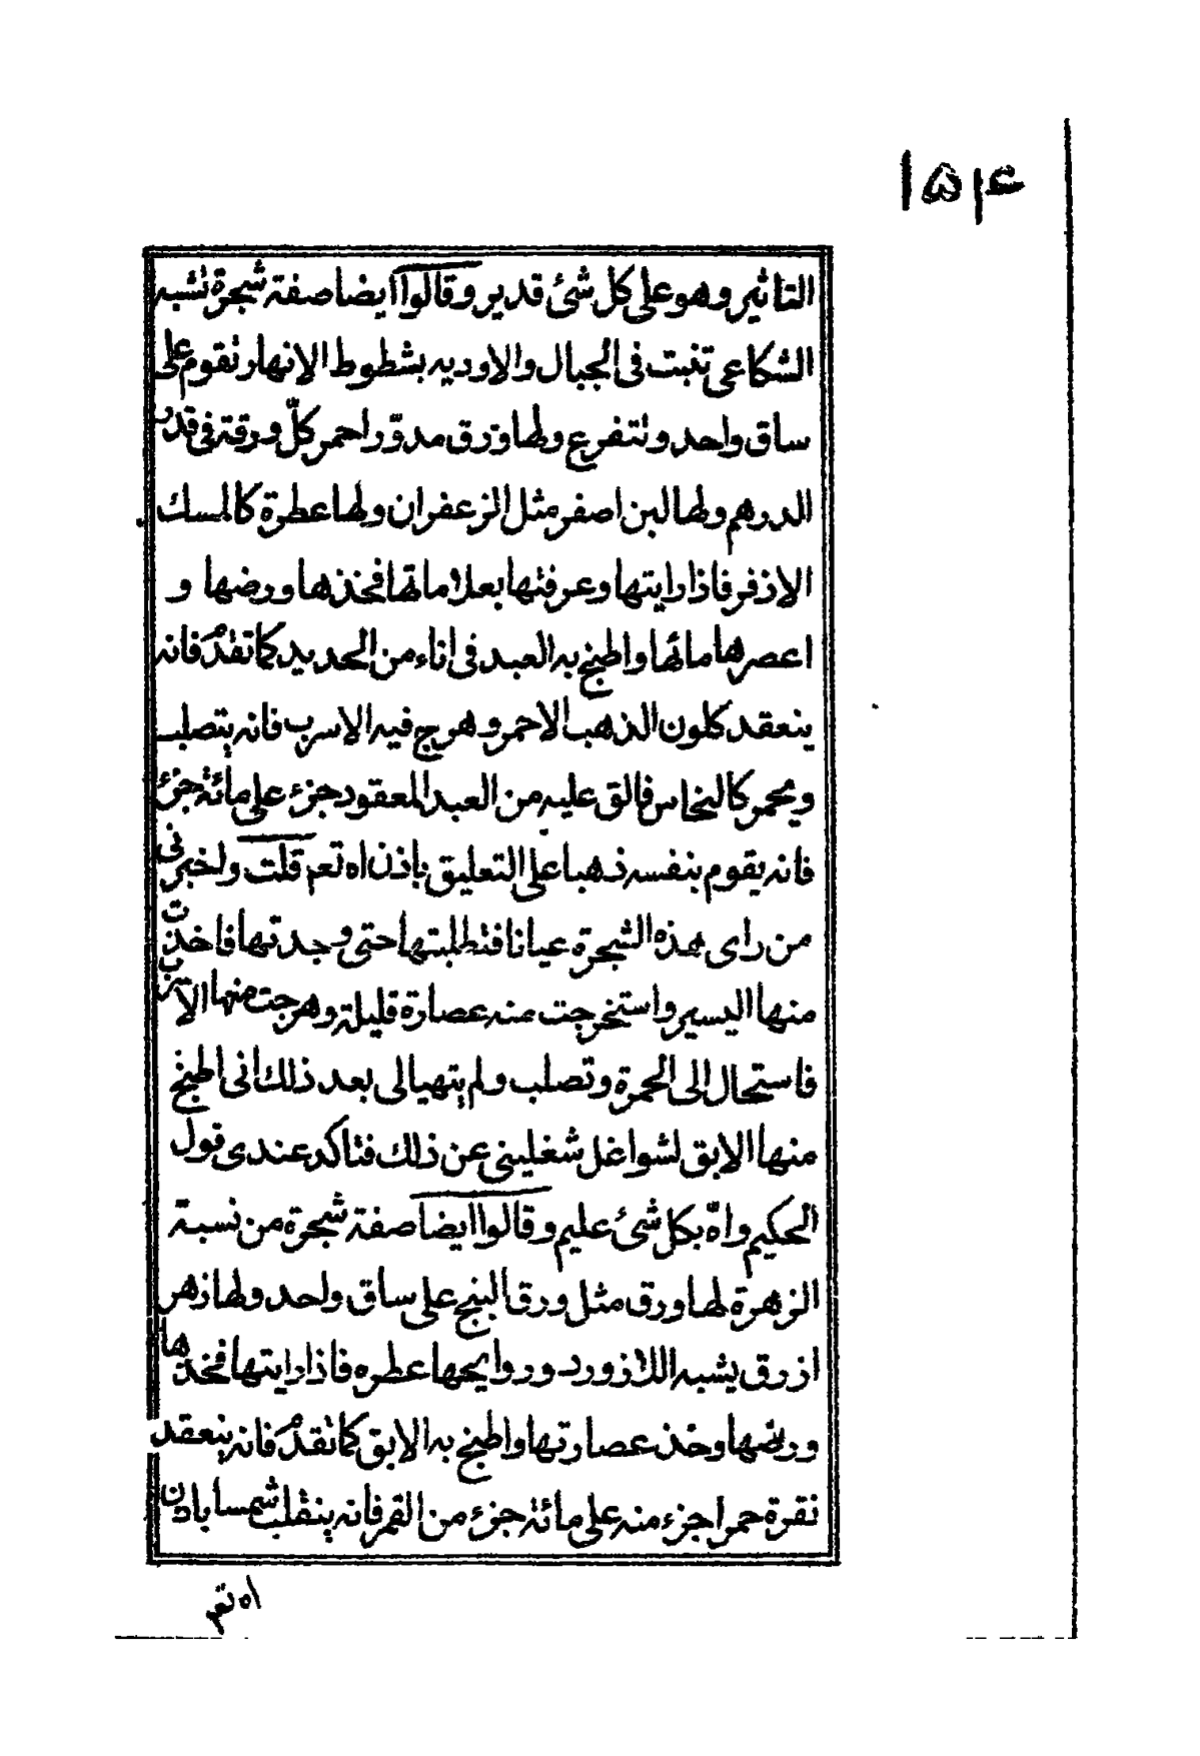 ١٥١٤
التاثير وهو على كل شئ قدير وقالوا ايضا صفة شجرة تشبه
الشكاعى تنبت فى الجبال والاوديه بشطوط الانهار تقوم على
ساق واحد وتتفرع ولها ورق مدوّر احمر كلّ ورقة فى قدر
الدرهم ولها لبن اصفر مثل الزعفران ولها عطرة كالمسك
الاذفر فاذا رايتها وعرفتها بعلاماتها فخذها ورضها و
اعصرها مائها واطبخ به العبد فى اناء من الحديد كما تقدم فانه
ينعقد كلون الذهب الاحمر وهرج فيه الاسرب فانه يتصلب
ويحمر كالنحاس فالق عليه من العبد المعقود جزء على مائة جزء
فانه يقوم بنفسه ذهبا على التعليق باذن اه تعم قلت واخبرنى
من راى هذه الشجرة عيانا فتطلبتها حتى وجدتها فاخذت
منها اليسير واستخرجت منه عصارة قليلة وهرجت منها الاسرب
فاستحال الى الحمرة وتصلب ولم يتهيالى بعد ذلك انى اطبخ
منها الابق لشواغل شغلينى عن ذلك فتاكد عندى قول
الحكيم واه بكل شئ عليم وقالوا ايضا صفة شجرة من نسبة
الزهرة لها ورق مثل ورق البنج على ساق واحد ولها زهر
ازرق يشبه اللازورد وروايحها عطره فاذا رايتها فخذها
ورضها وخذ عصارتها واطبخ به الابق كما تقدم فانه ينعقد
نقرة حمرا جزء منه على مائة جزء من القمر فانه ينقلب شمسا باذن
اه تعم